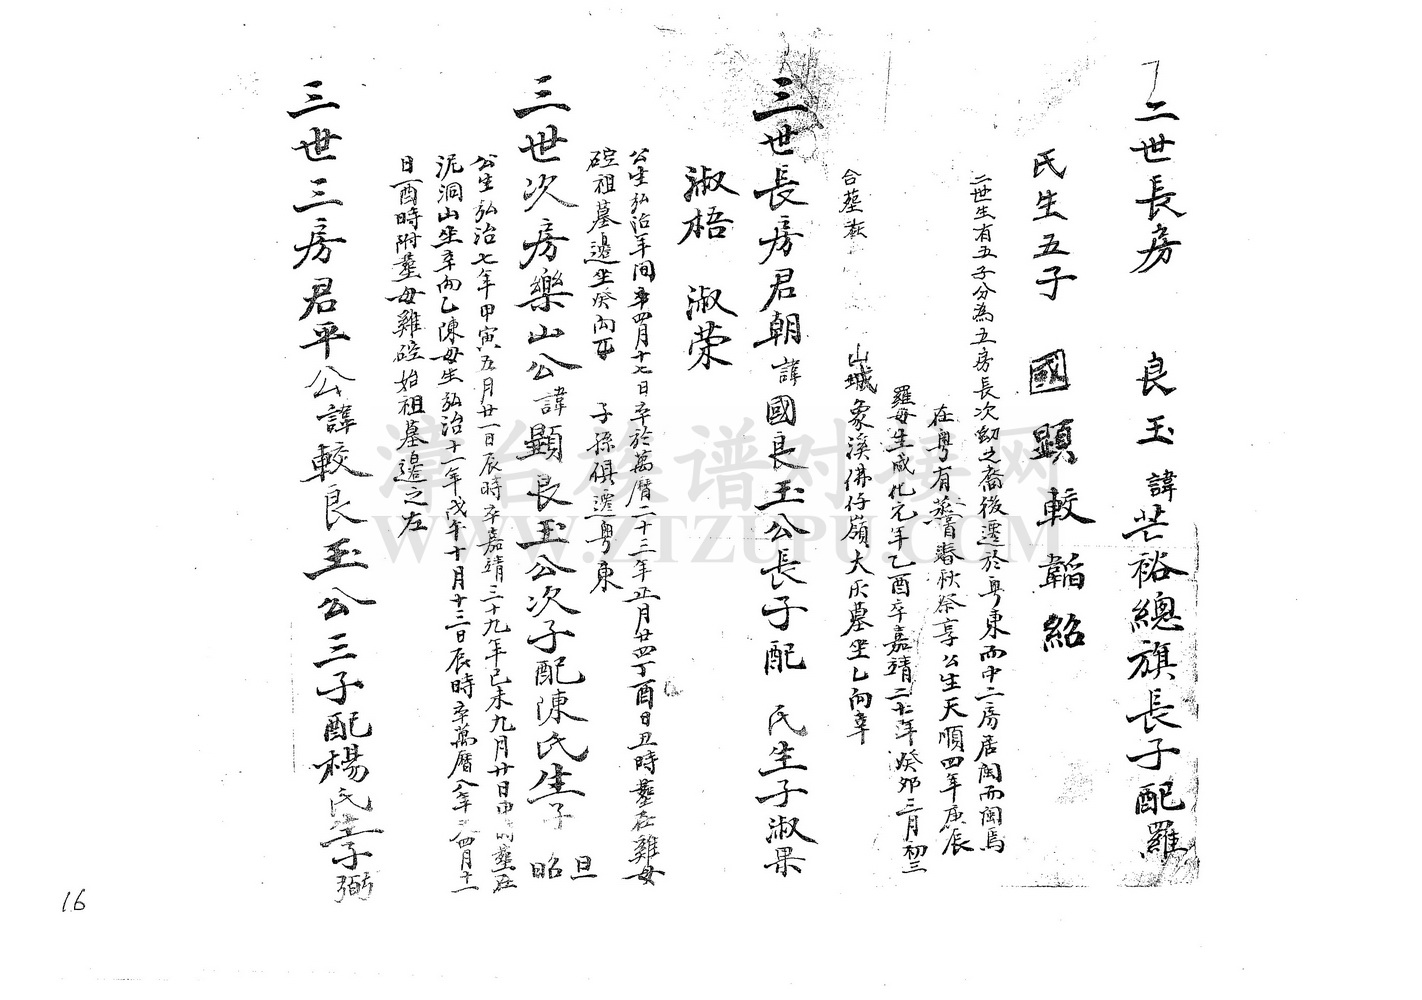 二世長房　良玉諱芒裕總旗長子配羅
氏生五子　國顕較韜紹
二世生有五子分為五房長次幼之裔後遷於粤東而中二房居閩而閩馬
在粤有蒸嘗春秋祭享公生天順四年庚辰
羅母生成化元年乙酉卒嘉靖二十年癸卯三月初三
合塟在　山城象溪佛仔嶺大灰墓坐乙向辛
三世長房君朝諱國良玉公長子配　氏生子淑果
淑梧　淑荣
公生弘治年间　四月十七日卒於萬曆二十三年正月廿四丁酉日丑時塟在雞母
硿祖墓邊坐癸向　子孫俱遷粤東
三世次房樂山公諱顕良玉公次子配陳氏生子　昭　旦
公生弘治七年甲寅五月廿一日辰時卒嘉靖三十九年己未九月廿日申時塟在
泥洞山坐辛向乙陳母生弘治十一年戊午十月十三日辰時卒萬曆八年　四月十一
日酉時附塟母雞硿始祖墓邊之左
三世三房君平公諱較良玉公三子配楊氏生子弼
16
漳台族谱对接网
WWW.ZTZUPU.COM